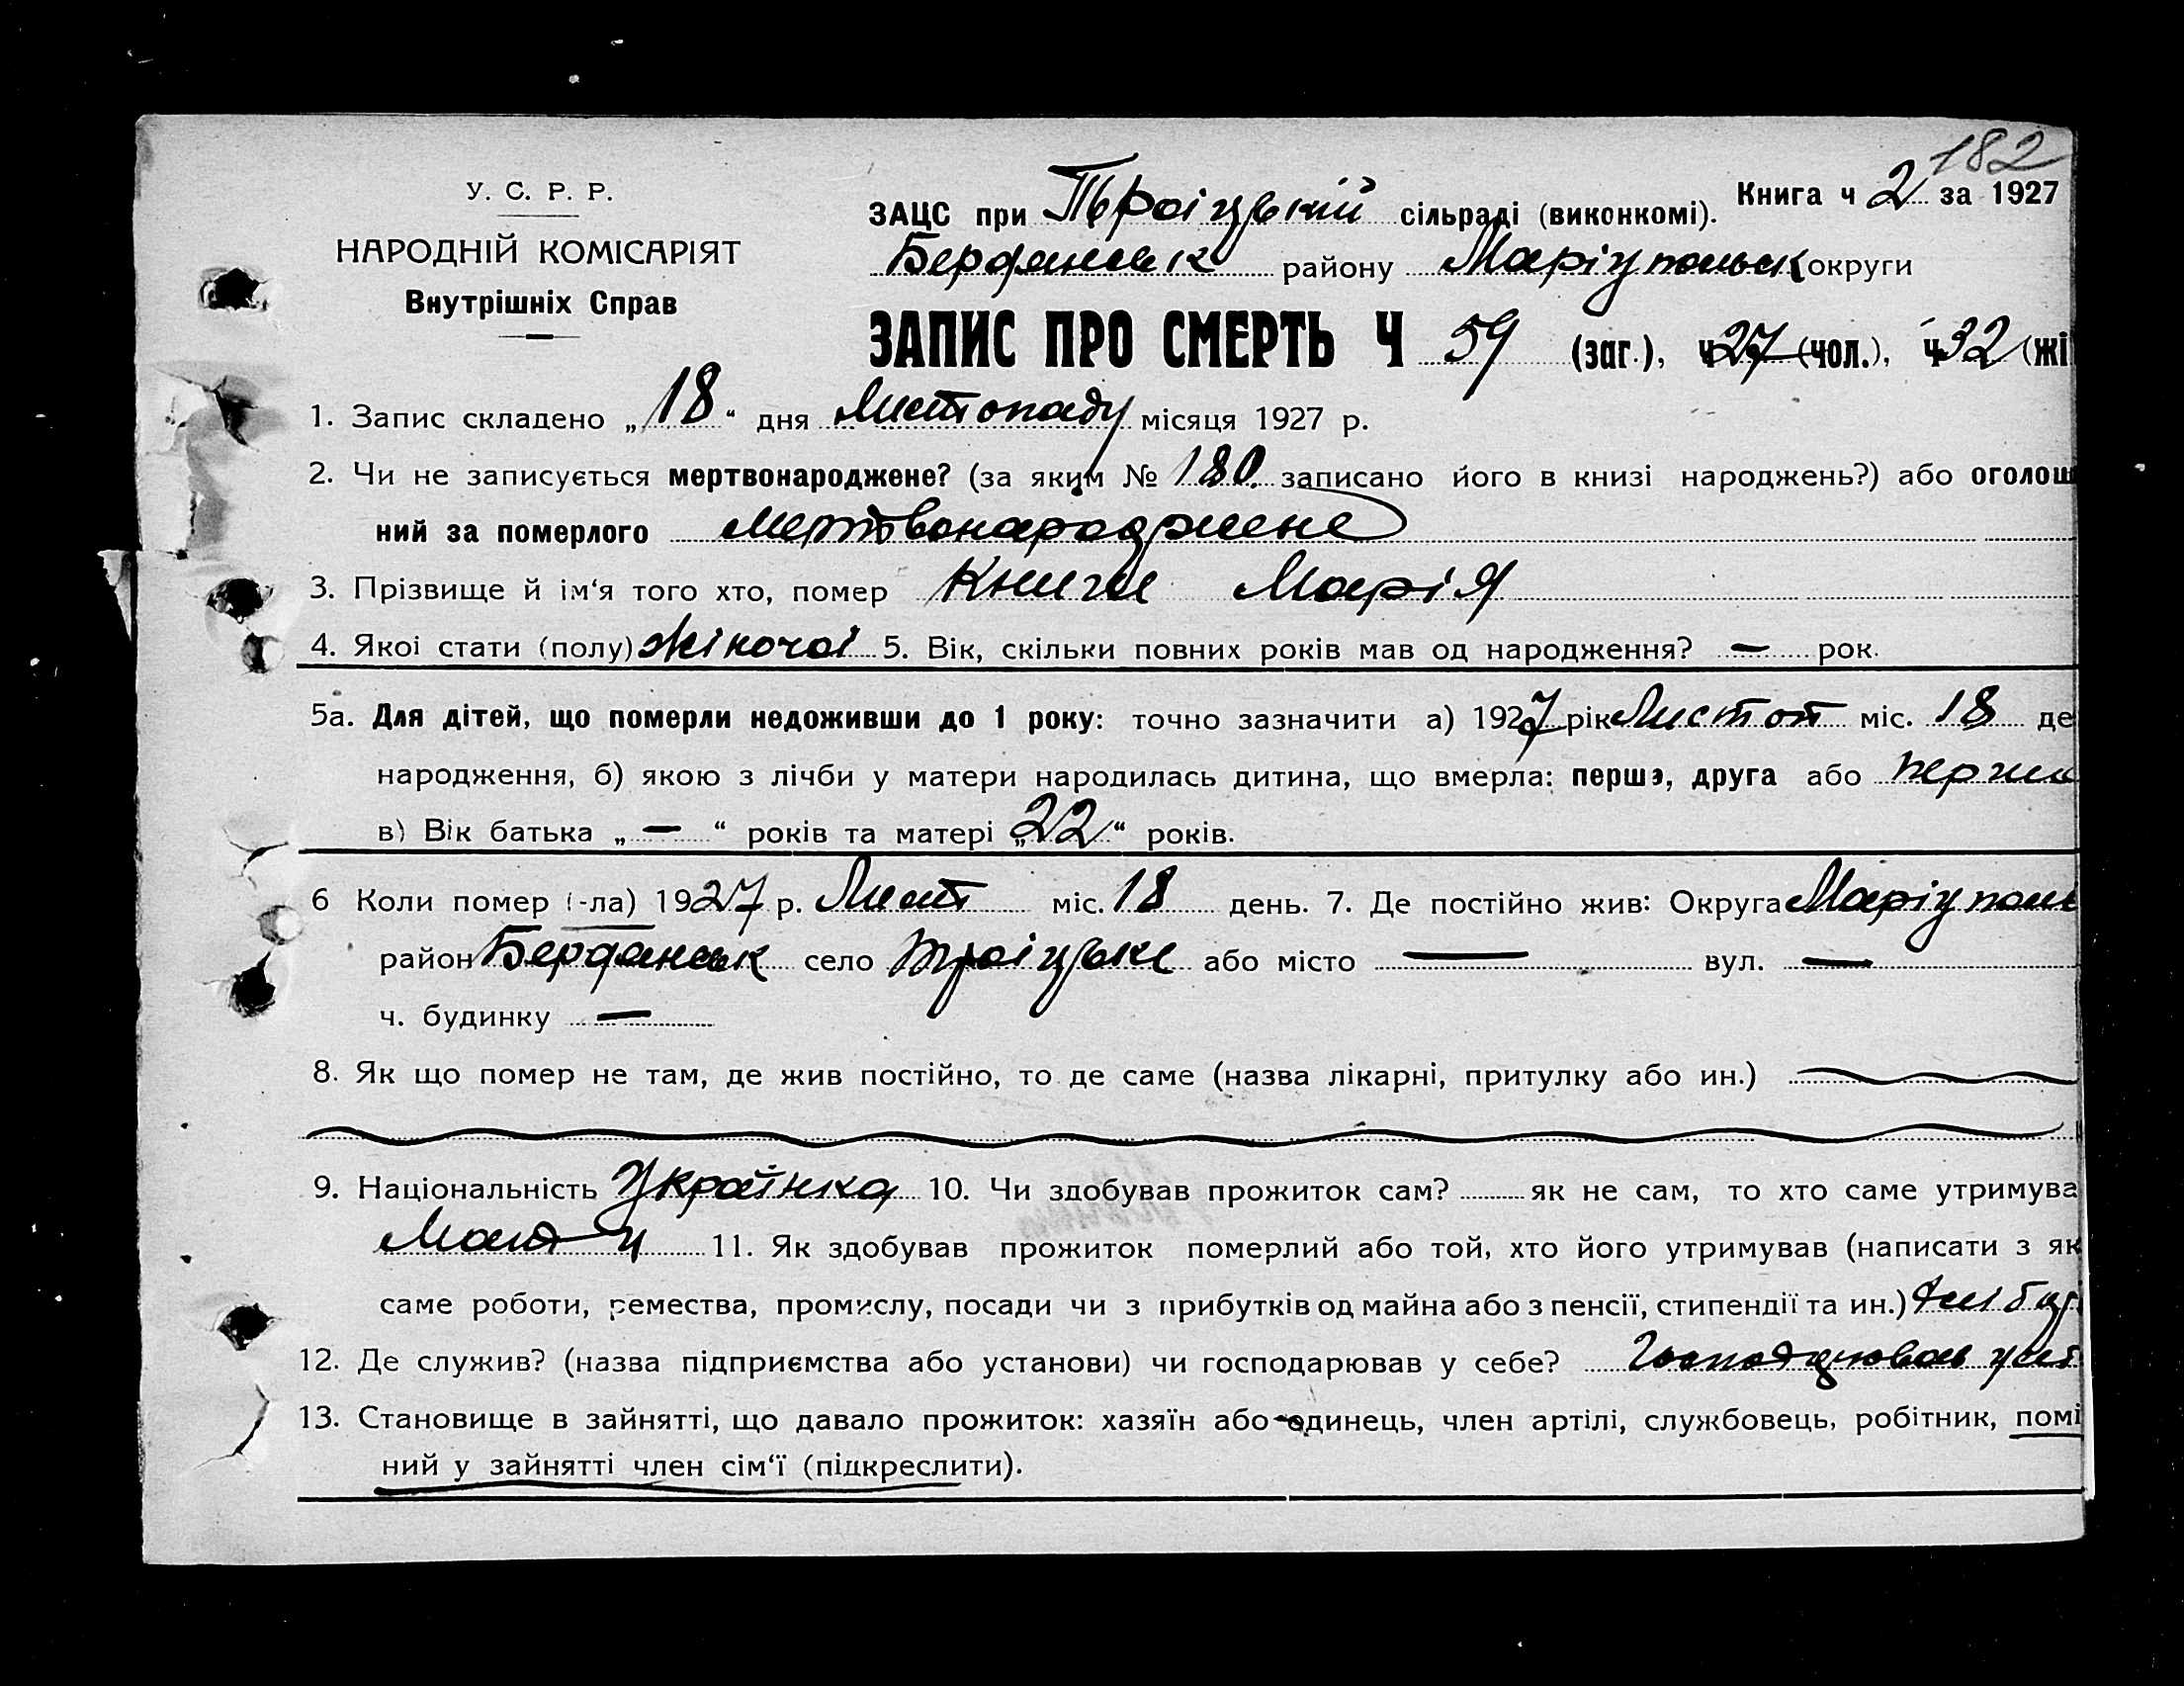 182
У. С. Р. Р.
НАРОДНІЙ КОМІСАРІЯТ
Внутрішніх Справ
Книга ч 2 за 1927
ЗАЦС при Троіцькій сільраді (виконкомі).
Бердянськ району Маріупольськ округи
ЗАПИС ПРО СМЕРТЬ Ч 59 (заг.), ч 27 (чол.), ч 32 (жі
1. Запис складено „18“ дня Листопаду місяця 1927 р.
2. Чи не записується мертвонароджене? (за яким № 180. записано його в книзі народжень?) або оголош
ний за померлого мертвонароджене
3. Прізвище й ім‘я того хто, помер Марія
4. Якої стати (полу) жіночоі 5. Вік, скільки повних років мав од народження? — рок.
5а. Для дітей, що померли недоживши до 1 року: точно зазначити а) 1927 рік Листоп міс. 18 де
народження, б) якою з лічби у матери народилась дитина, що вмерла: перша, друга або перша
в) Вік батька „—“ років та матері „22“ років.
6 Коли помер (-ла) 1927 р. Лист міс. 18 день. 7. Де постійно жив: Округа Маріуполь
район Бердянськ село Троіцьке або місто — вул. —
ч. будинку —
8. Як що помер не там, де жив постійно, то де саме (назва лікарні, притулку або ин.)
9. Національність Українка 10. Чи здобував прожиток сам? як не сам, то хто саме утримува
11. Як здобував прожиток померлий або той, хто його утримував (написати з як
саме роботи, ремества, промислу, посади чи з прибутків од майна або з пенсії, стипендії та ин.)
12. Де служив? (назва підприємства або установи) чи господарював у себе?
13. Становище в зайнятті, що давало прожиток: хазяїн або одинець, член артілі, службовець, робітник, помі
ний у зайнятті член сім‘ї (підкреслити).